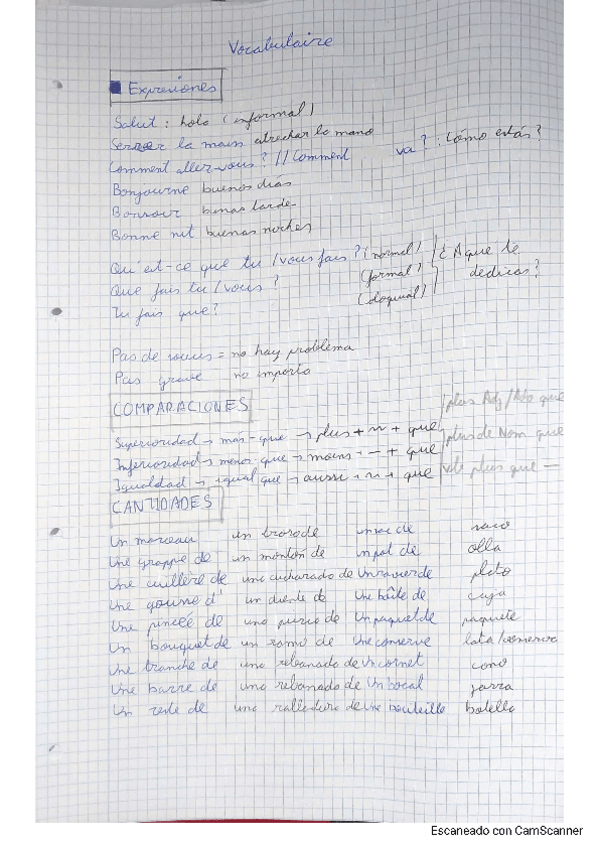 Vocabulaire
Expresiones
Salut : hola (informal)
Serrer la main estrechar la mano
Comment allez-vous? // Comment va? : Cómo estás?
Bonjourne buenos días
Bonsoir buenas tardes
Bonne nit buenas noches
Qu'est-ce que tu/vous fais? (normal) ¿A que te
Que fais tu/vous? (formal) dedicas?
Tu fais que? (coloquial)
Pas de soucis = no hay problema
Pas grave no importa
COMPARACIONES plus Adj/Adv que
Superioridad → más - que → plus + n + que plus de Nom que
Inferioridad → menos que → moins + — + que
Igualdad → igual que → aussi + n + que vb plus que —
CANTIDADES
Un morceau un trozo de un sac de saco
Une grappe de un montón de un pot de olla
Une cuillère de una cucharada de Un ravier de plato
Une gousse d' un diente de Une boîte de caja
Une pincée de una pizca de Un paquet de paquete
Un bouquet de un ramo de Une conserve lata/conserva
Une tranche de una rebanada de Un cornet cono
Une barre de una rebanada de Un bocal jarra
Un zeste de una ralladura de Une bouteille botella
Escaneado con CamScanner